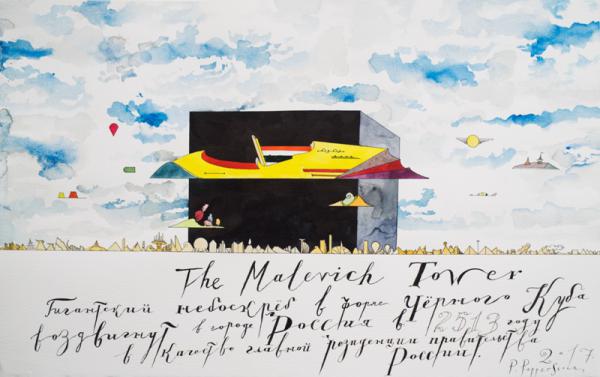 The Malevich Tower
Гигантский небоскрёб в форме Чёрного Куба
воздвигнут в городе Россия в 2513 году
в качестве главной резиденции правительства
России.
2017.
P. Pepperstein